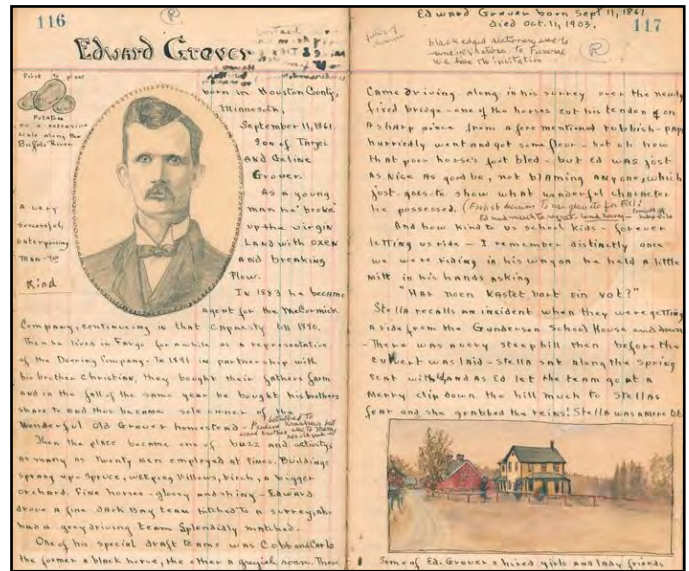 116
Edward Grover
First to plant
Potatoes
on a extensive
scale along the
Buffalo River
A very
successful,
enterprising
man -
Kind
born in Houston County,
Minnesota,
September 11, 1861.
Son of Targei
and Geline
Grover.
As a young
man he "broke"
up the virgin
land with oxen
and breaking
Plow.
In 1883 he became
agent for the McCormick
Company, continuing in that capacity till 1890.
Then he lived in Fargo for awhile as a representative
of the Deering Company. In 1891 in partnership with
his brother Christian, they bought their fathers farm
and in the fall of the same year he bought his brothers
share to and thus became sole owner of the
Wonderful Old Grover homestead -
Then the place became one of buzz and activity,
as many as twenty men employed at times. Buildings
sprang up - spruce, weeping willows, birch, a bigger
orchard. Fine horses - glossy and shiny - Edward
drove a fine dark Bay team hitched to a surrey, also
had a grey driving team splendidly matched.
One of his special draft teams was Cobb and Carlo
the former a black horse, the other a grayish roan. There
Edward Grover born Sept 11, 1861
died Oct. 11, 1903.
117
black edged stationary and to
funeral
we have the invitation
R
came driving along in his surrey over the newly
fixed bridge - one of the horses cut his tendon on
a sharp piece from afore mentioned rubbish - papa
hurriedly went and got some flour - but oh how
that poor horse's foot bled - but Ed was just
as nice as good be, not blaming anyone, which
just goes to show what wonderful character
he possessed.
And how kind to us school kids - forever
letting us ride - I remember distinctly once
we were riding in his wagon he held a little
mitt in his hands asking
"Har noen kastet bort ein vot?"
Stella recalls an incident when they were getting
a ride from the Gunderson School House and down
- There was a very steep hill then before the
culvert was laid - Stella sat along the spring
seat with Ed and as Ed let the team go at a
merry clip down the hill much to Stellas
fear and she grabbed the reins! Stella was a mere
Some of Ed. Grover's hired girls and lady friends